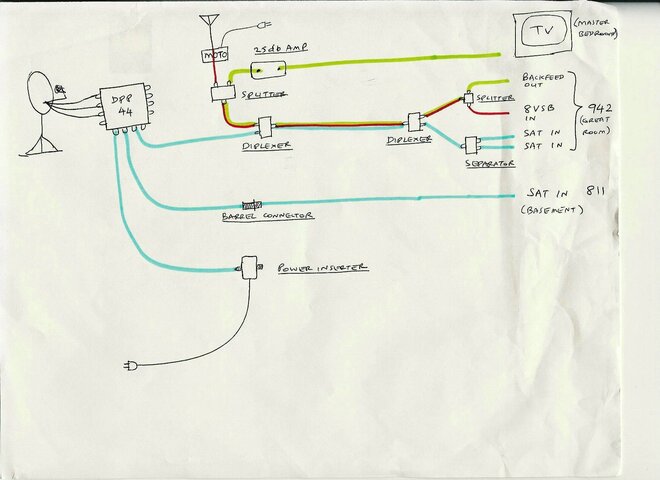 (MASTER
BEDROOM)
TV
MOTO
25db AMP
SPLITTER
DPP
44
BACKFEED
OUT
SPLITTER
8VSB
IN
942
(GREAT
ROOM)
SAT IN
SAT IN
DIPLEXER
DIPLEXER
SEPARATOR
SAT IN 811
(BASEMENT)
BARREL CONNECTOR
POWER INSERTER